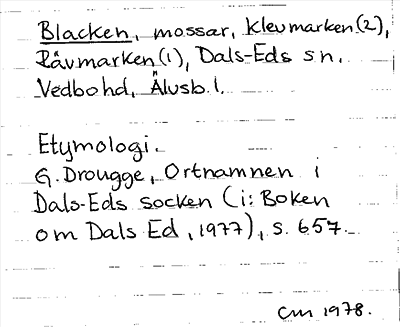 Blacken, mossar, Klevmarken(2),
Rävmarken(1), Dals-Eds sn.
Vedbo hd, Älvsb. l.
Etymologi.
G. Drougge, Ortnamnen i
Dals-Eds socken (i: Boken
om Dals Ed, 1977), s. 657.
CM 1978.